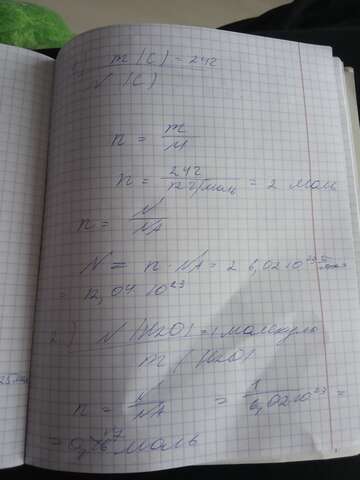 m (C) = 24г
N (C)
n = m/M
n = 24г/12г/моль = 2 моль
n = N/NA
N = n · NA = 2 6,02·10²³
= 12,04·10²³
2) N (H2O) = 1 молекула
m (H2O)
n = N/NA = 1/6,02·10²³ =
моль